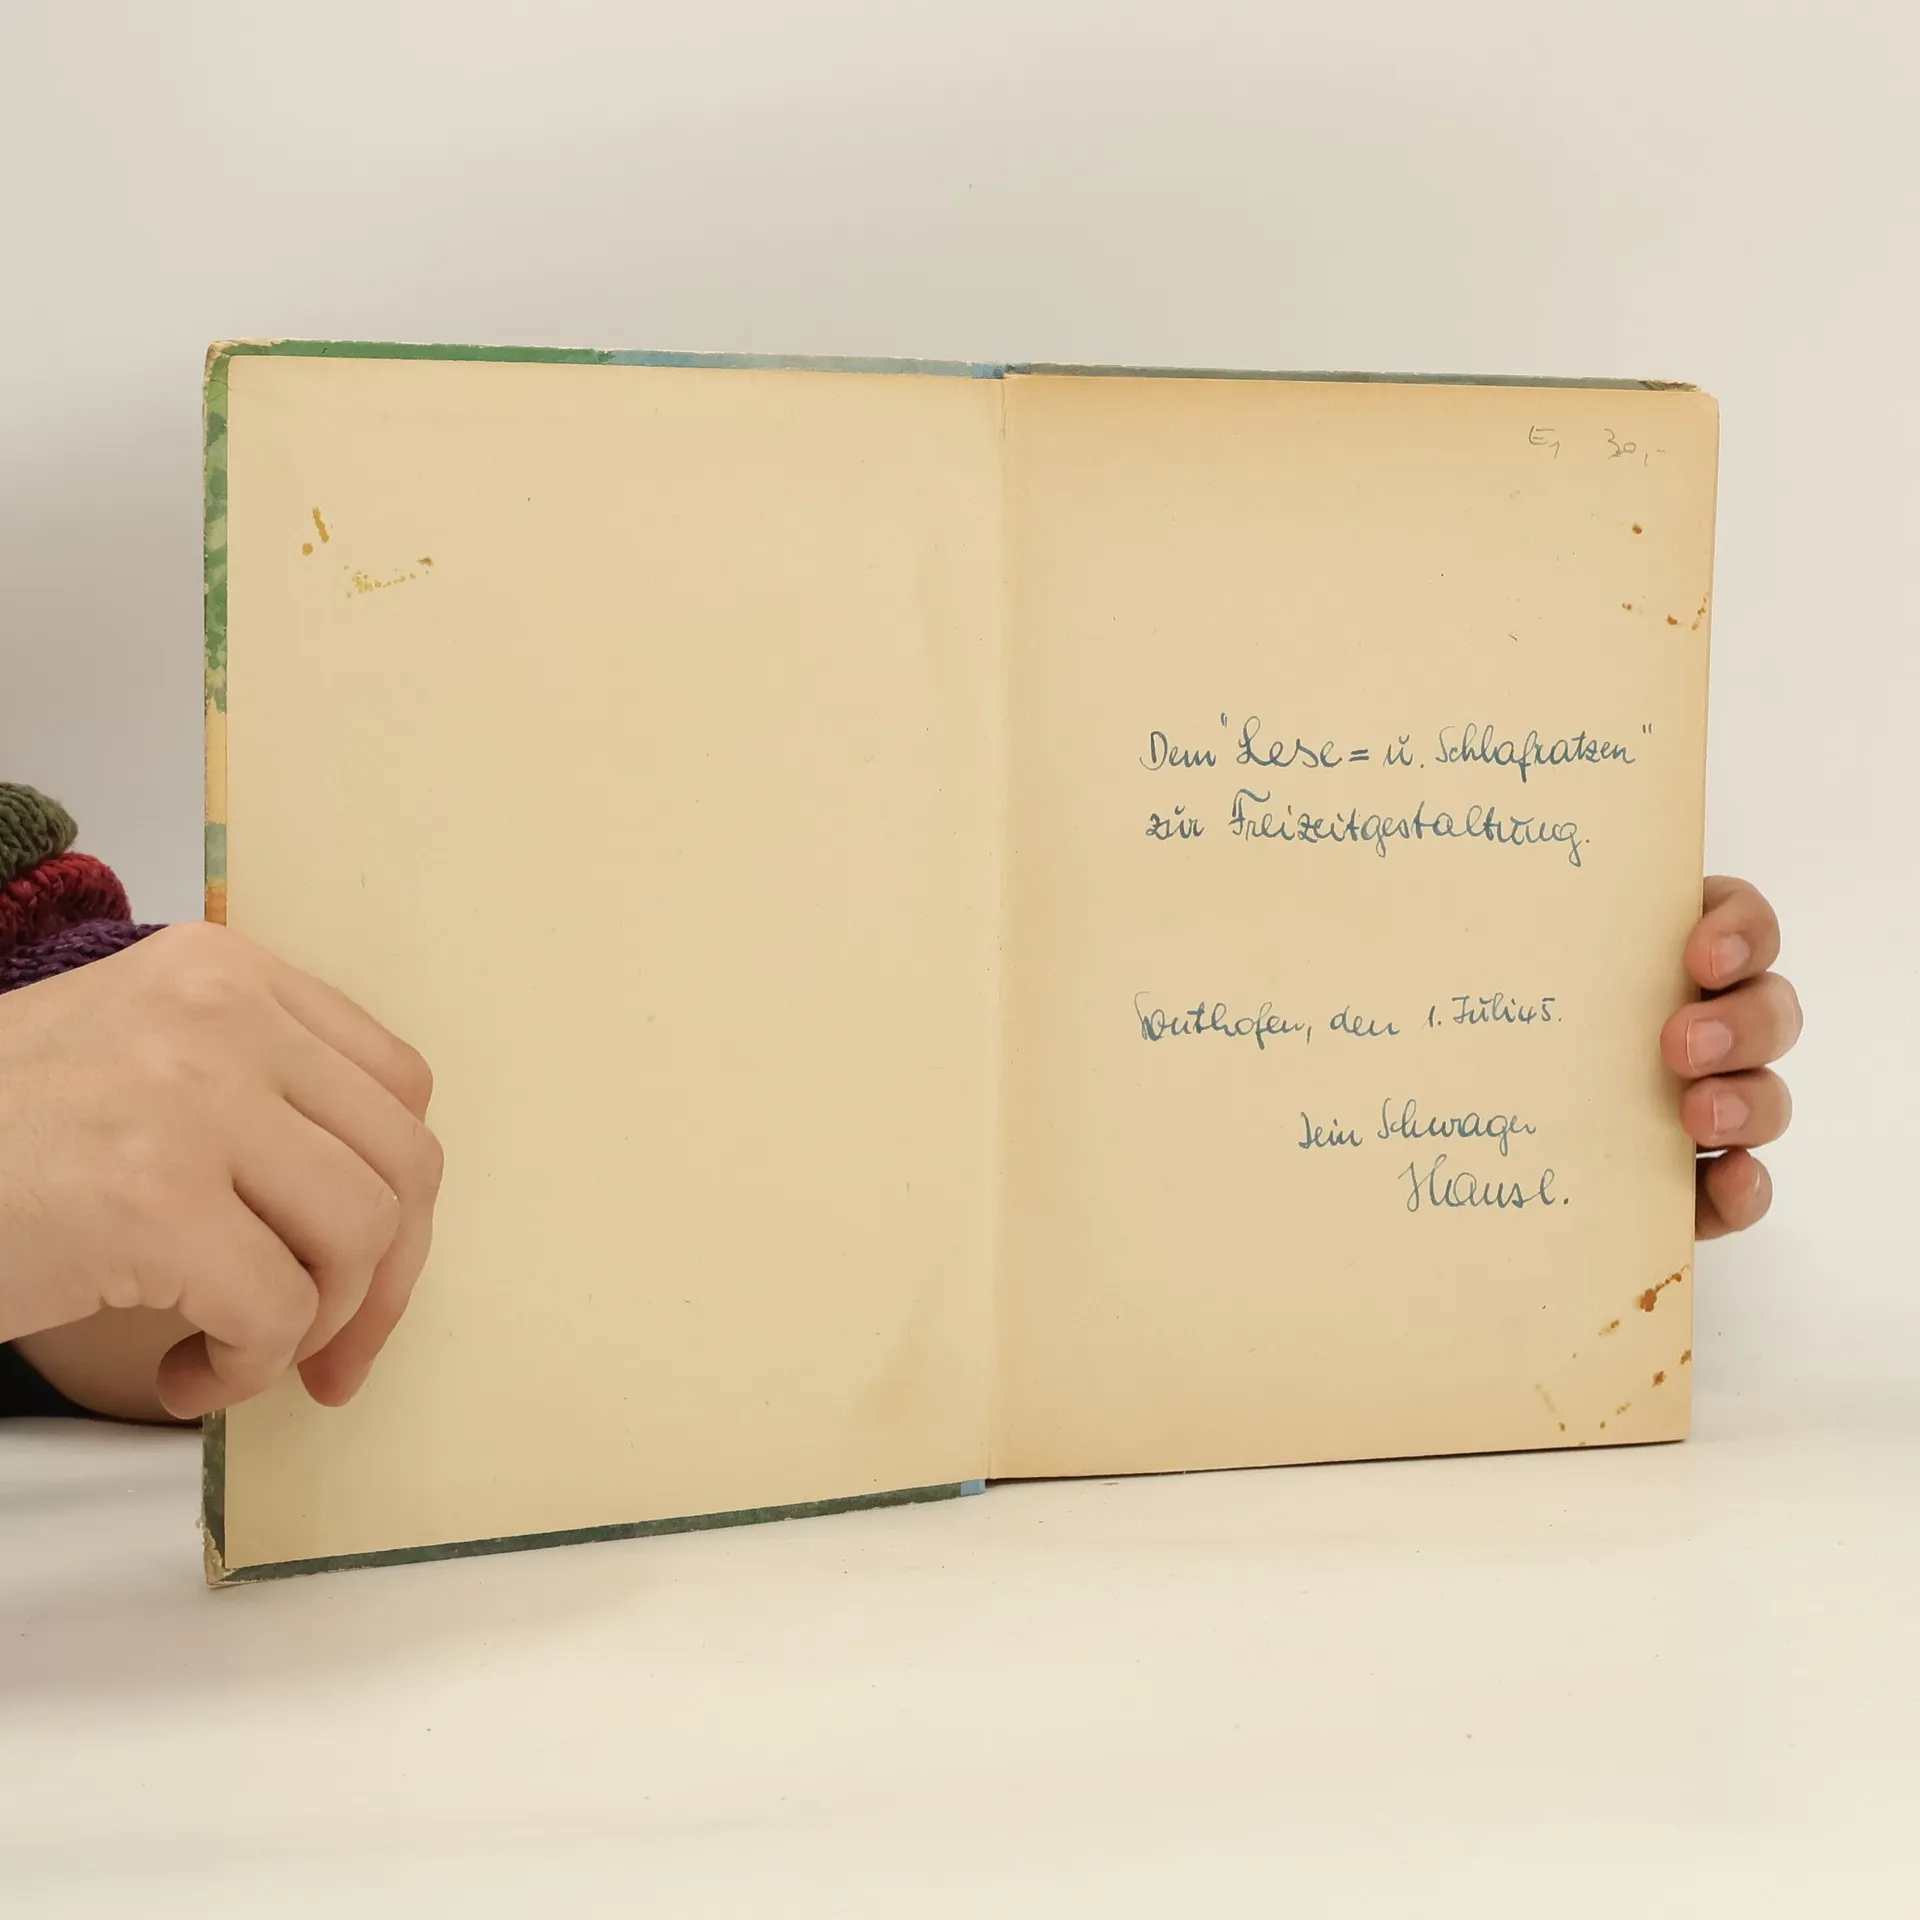 E1 30,-
Dem "Lese= u. Schlafratzen"
zur Freizeitgestaltung.
Sonthofen, den 1. Juli 45.
Dein Schwager
Hansl.